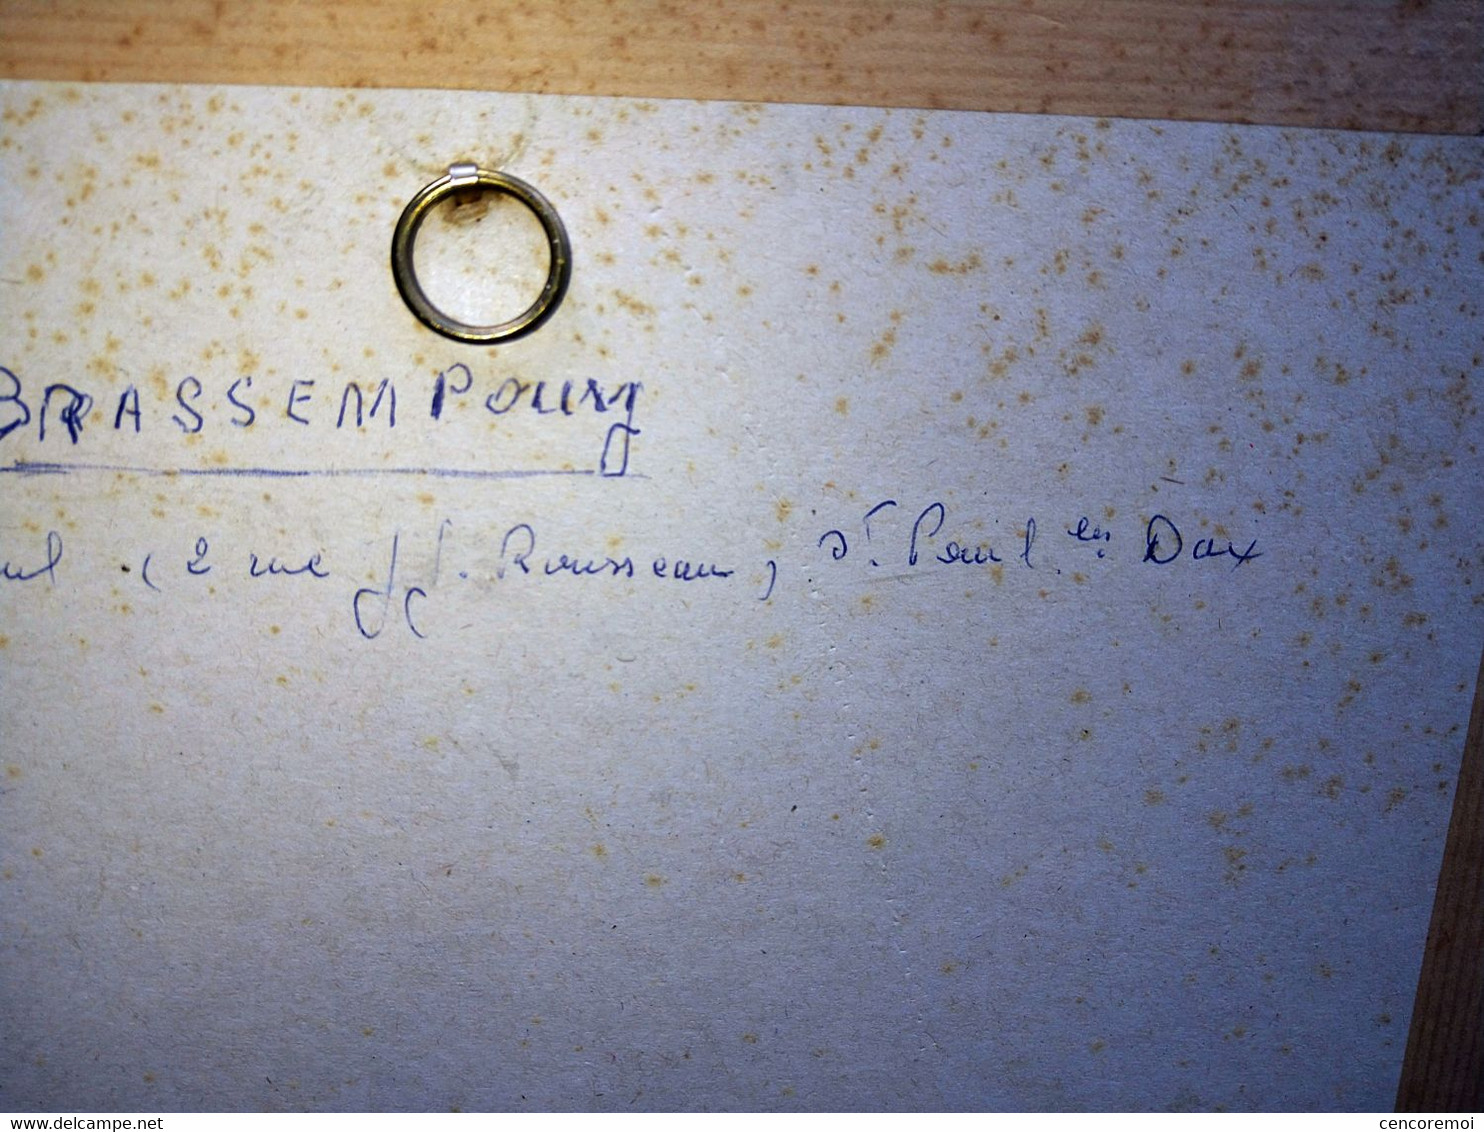 BRASSEMPOUY
ul . ( 2 rue J J. Rousseau, St. Paul les Dax
delcampe.net
cencoremoi